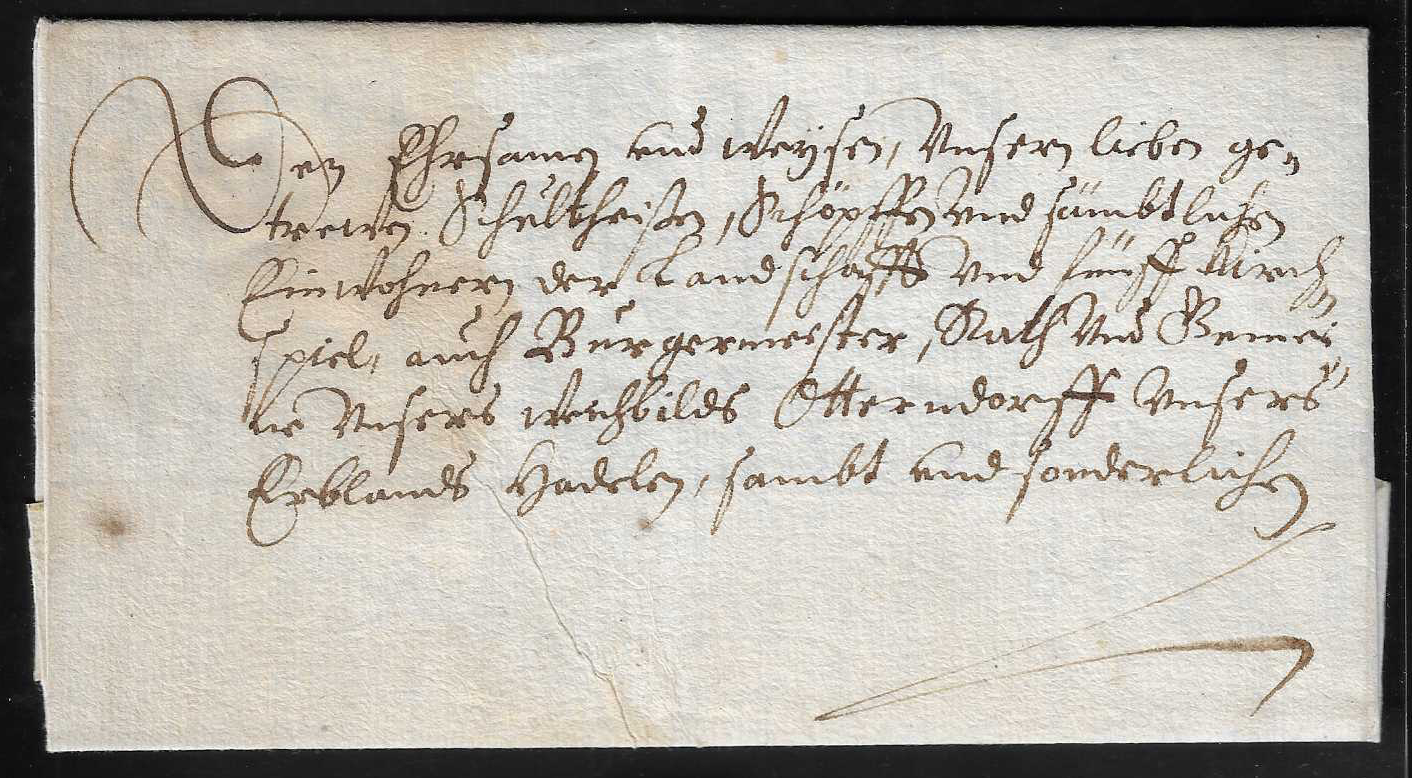 Den Ehrsamen und Weysen, Unsern lieben ge-
trewen Schultheißen, Schöpffen und sämbtlichen
Einwohnern der Landschafft und fünff Kirch
spiel, auch Burgermeister, Rath und Gemei-
ne Unsers Weichbilds Otterndorff Unsers
Erblands Hadelen, sambt und sonderlichen